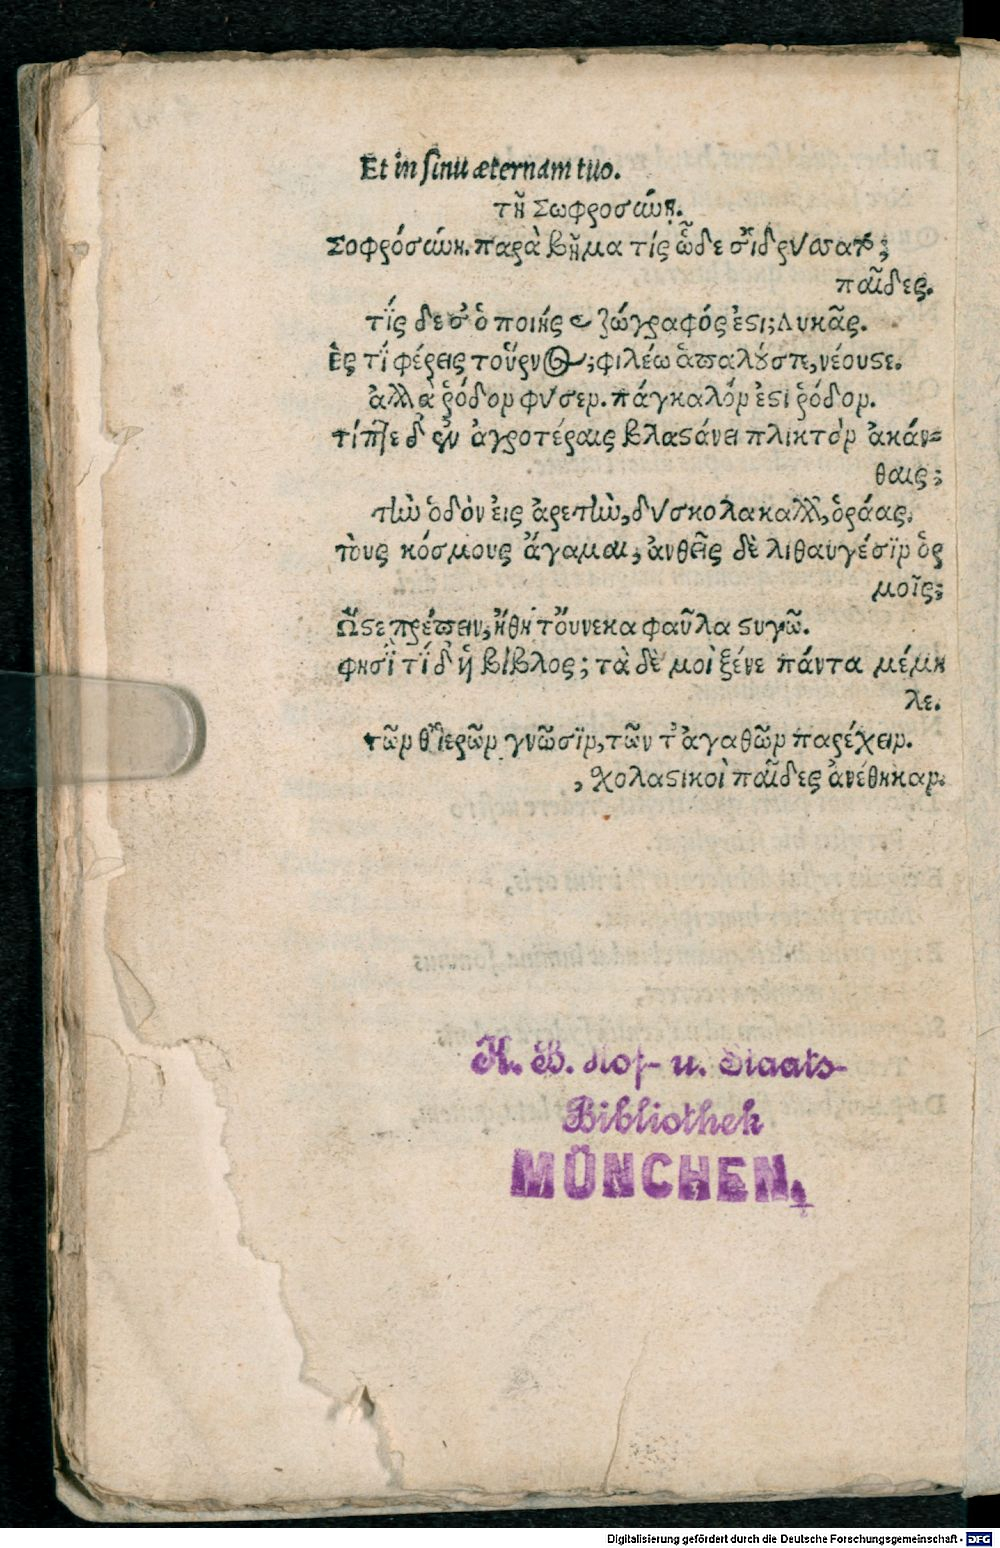 Et in sinu æternam tuo.
τῇ Σωφροσύνῃ.
Σοφρόσύνη. παρὰ βῆμα τίς ὧδε σ' ἱδρύσατο;
παῖδες.
τίς δε σ' ὁ ποιής ζώγραφός ἐστι; Λυκᾶς.
ἐς τί φέρεις τοὔρνος; φιλέω ἁπαλούς τε, νέους τε.
ἀλλὰ ῥόδον φύσεν. πάγκαλόν ἐστι ῥόδον.
τίπτε δ' ἐν ἀγροτέραις βλαστάνει πλικτὸν ἀκάν=
θαις;
τὴν ὁδὸν εἰς ἀρετὴν, δύσκολα κἄλλ', ὁράας.
τοὺς κόσμους ἄγαμαι, ἀνθεῖς δὲ λιθαυγέσιν ὁρ
μοῖς;
Ὥστε πρέπειν, ἤθη τοὔνεκα φαῦλα στυγῶ.
φησὶ τί δ' ἡ βίβλος; τὰ δὲ μοὶ ξένε πάντα μέμη
λε.
τῶν θ' ἱερῶν γνῶσιν, τῶν τ' ἀγαθῶν παρέχειν.
, χολαστικοὶ παῖδες ἀνέθηκαν.
K. B. Hof- u. Staats-
Bibliothek
MÜNCHEN
Digitalisierung gefördert durch die Deutsche Forschungsgemeinschaft - DFG